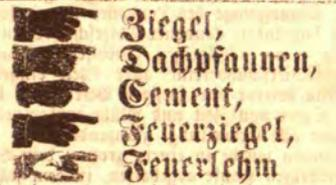 Ziegel,
Dachpfannen,
Cement,
Feuerziegel,
Feuerlehm